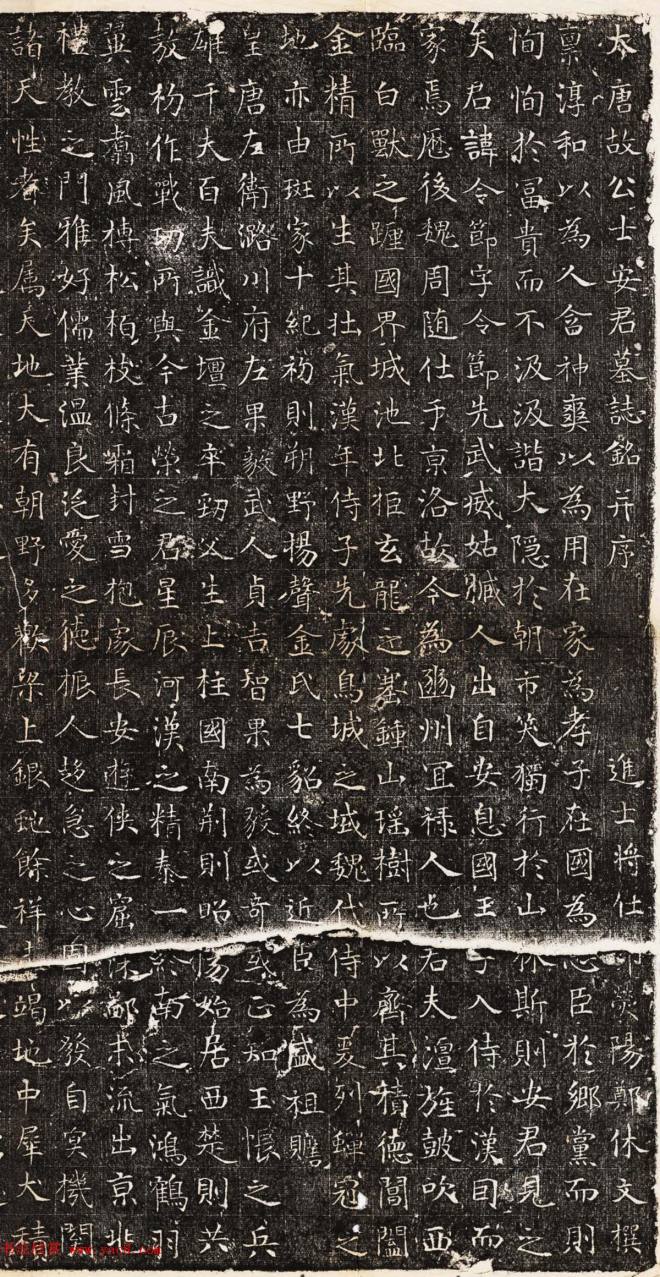 大唐故公士安君墓誌銘并序 進士將仕郎滎陽鄭休文撰
稟淳和以為人含神爽以為用在家為孝子在國為忠臣於鄉黨而則
恂恂於富貴而不汲汲諧大隱於朝市笑獨行於山林斯則安君見之
矣君諱令節字令節先武威姑臧人出自安息國王子入侍於漢因而
家焉歷後魏周隨仕于京洛故今為豳州宜祿人也若夫澶鼓吹西
臨白獸之躔國界城池北拒玄龍之塞鍾山瑤樹所以齊其積德閶闔
金精所以生其壯氣漢年侍子先處烏城之域魏代侍中爰列之
地亦由班家十紀初則朔野揚聲金氏七貂終以近臣為盛祖贍
皇唐左衛潞川府左果毅武人貞吉智果為毅或奇或正知王帳之兵
雄千夫百夫識金壇之卒勁父生上柱國南荊則昭陽始居西楚則共
敖初作戰功所與今古榮之君星辰河漢之精泰一終南之氣鴻鶴羽
翼雲翥風摶松栢枝條霜封雪抱處長安遊俠之窟深鄙末流出京兆
禮教之門雅好儒業溫良泛愛之德振人趍急之心固以發自冥機關
諸天性者矣属天地大有朝野多歡梁上銀虵餘祥未竭地中犀犬積